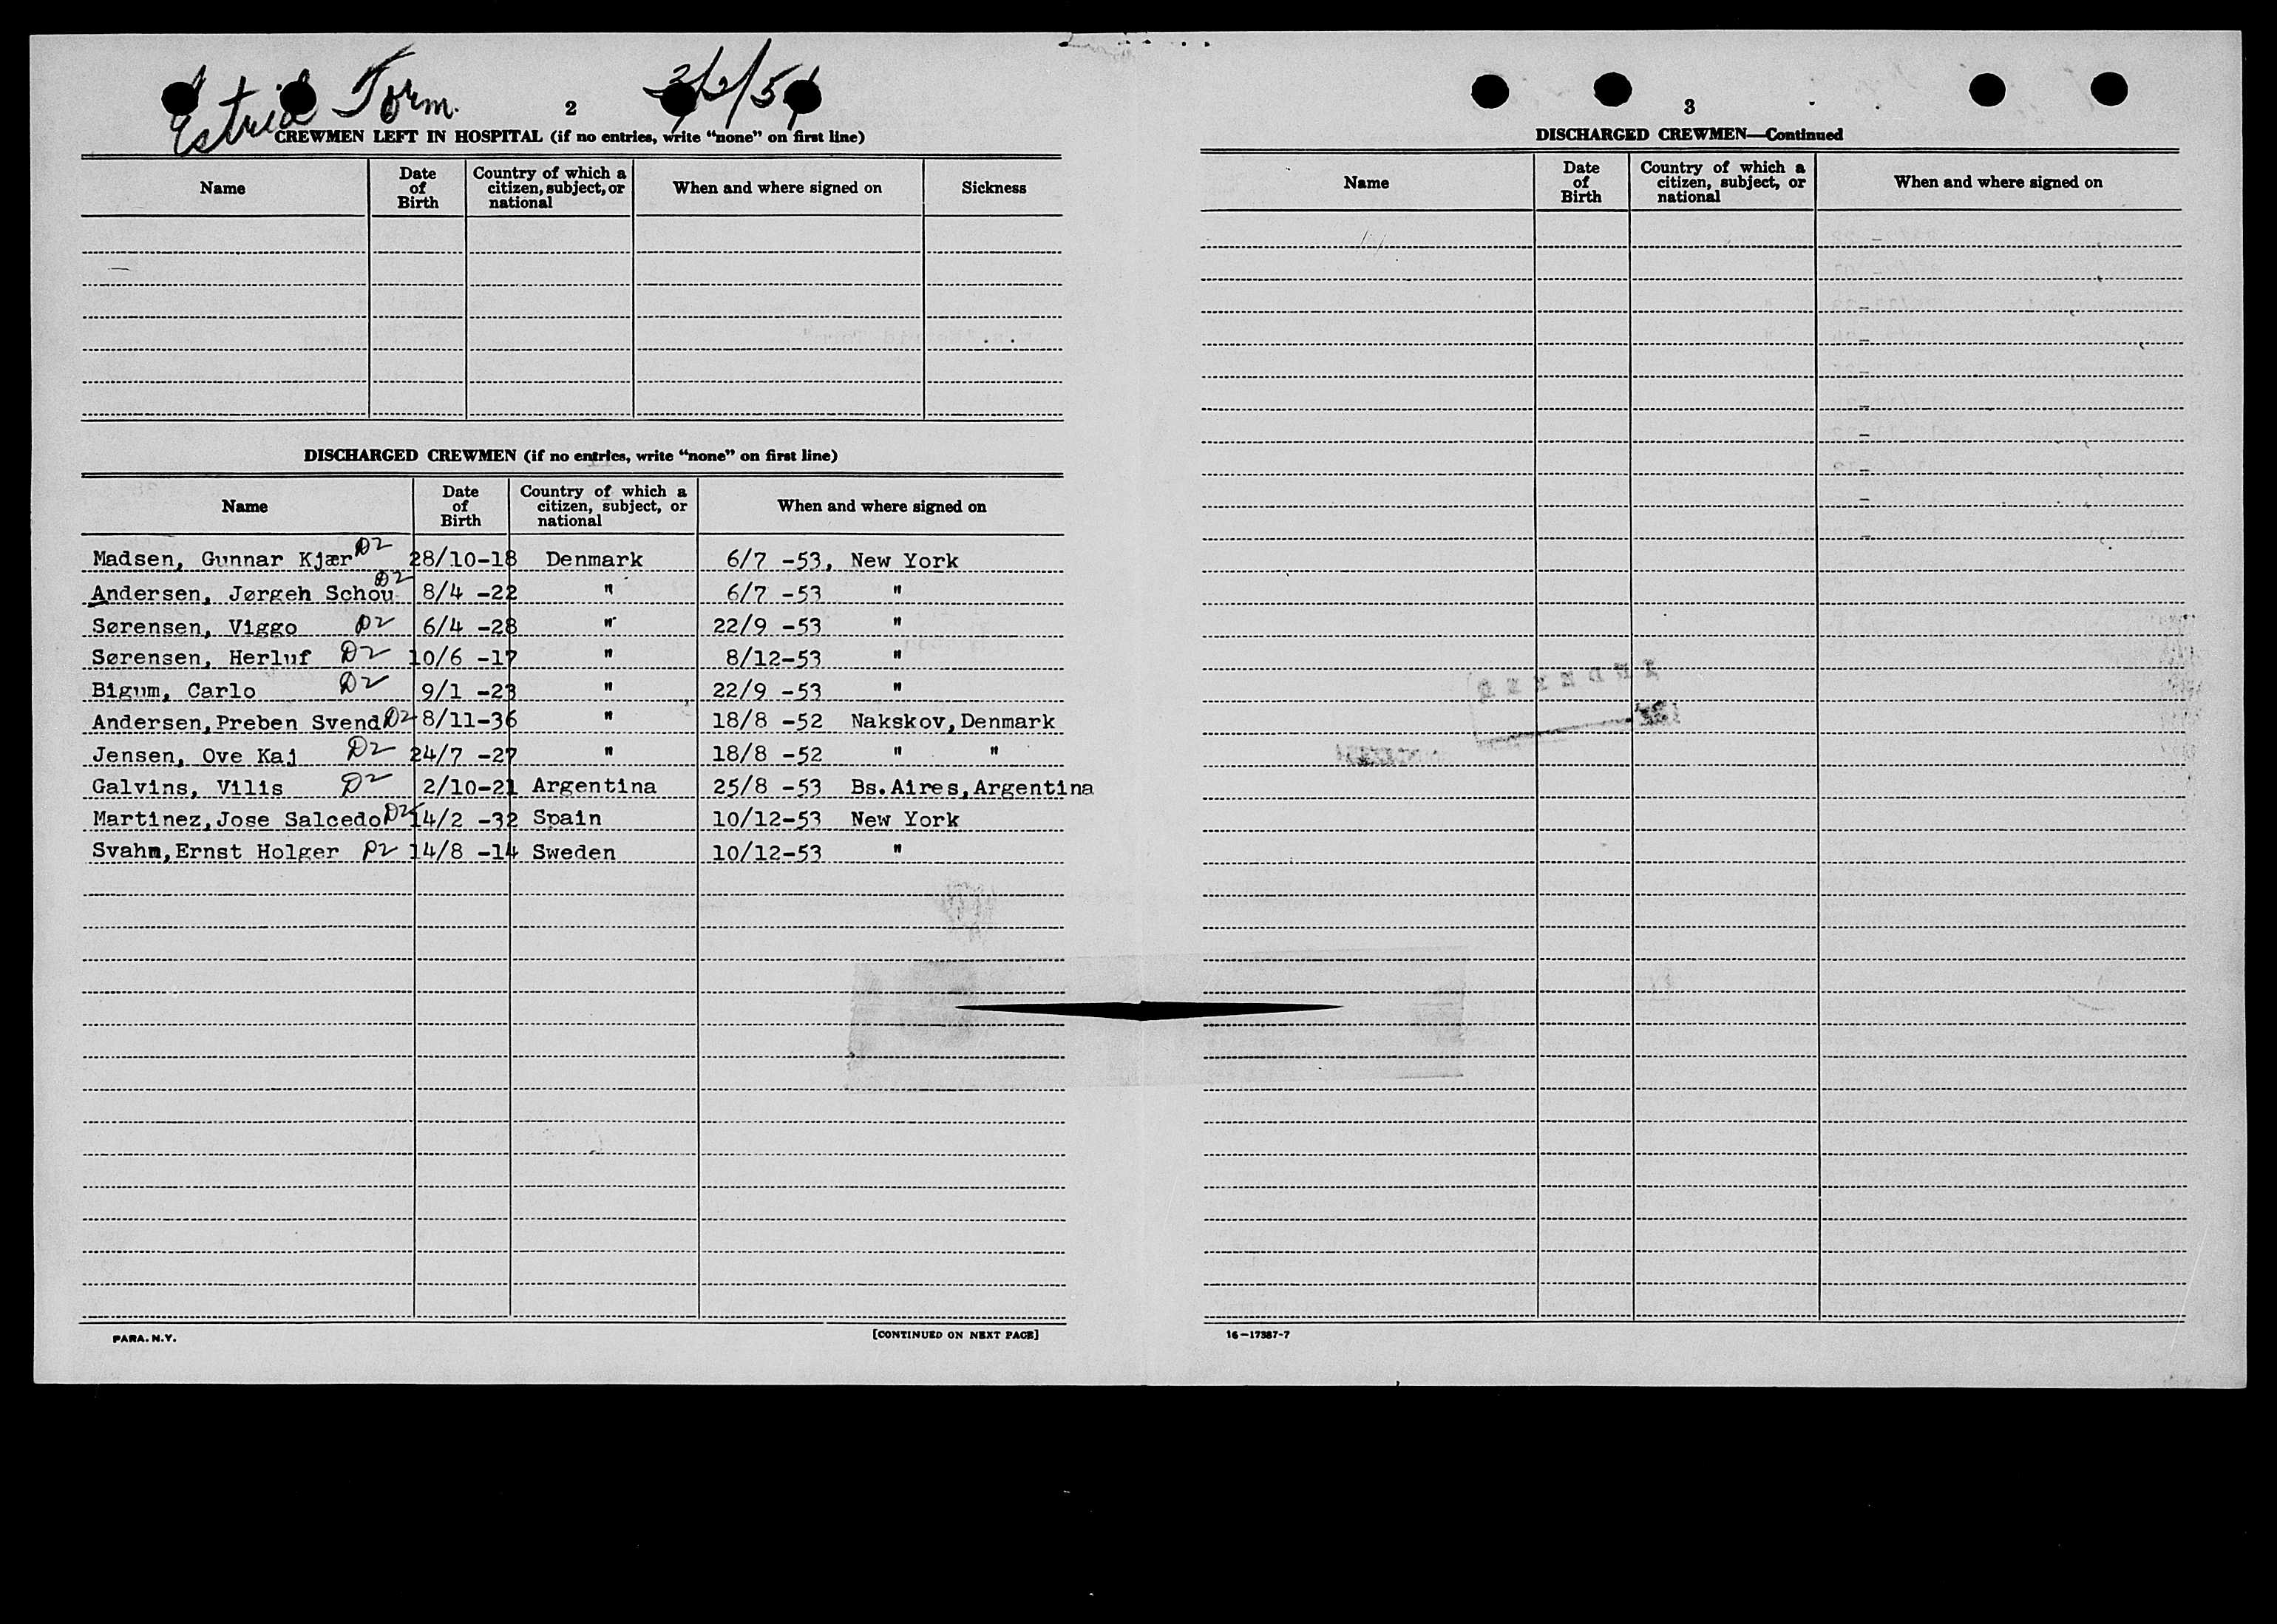 Estrid Torm.
2
CREWMEN LEFT IN HOSPITAL (if no entries, write "none" on first line)
Name Date of Birth Country of which a citizen, subject, or national When and where signed on Sickness
DISCHARGED CREWMEN (if no entries, write "none" on first line)
Name Date of Birth Country of which a citizen, subject, or national When and where signed on
Madsen, Gunnar Kjær D2 28/10-18 Denmark 6/7 -53, New York
Andersen, Jørgen Schou D2 8/4 -22 " 6/7 -53 "
Sørensen, Viggo D2 6/4 -28 " 22/9 -53 "
Sørensen, Herluf D2 10/6 -17 " 8/12-53 "
Bigum, Carlo D2 9/1 -23 " 22/9 -53 "
Andersen,Preben Svend D2 8/11-36 " 18/8 -52 Nakskov,Denmark
Jensen, Ove Kaj D2 24/7 -27 " 18/8 -52 " "
Galvins, Vilis D2 2/10-21 Argentina 25/8 -53 Bs.Aires,Argentina
Martinez,Jose Salcedo D2 14/2 -32 Spain 10/12-53 New York
Svahn,Ernst Holger D2 14/8 -14 Sweden 10/12-53 "
PARA. N.Y. [CONTINUED ON NEXT PAGE]
3
DISCHARGED CREWMEN—Continued
Name Date of Birth Country of which a citizen, subject, or national When and where signed on
16—17387-7